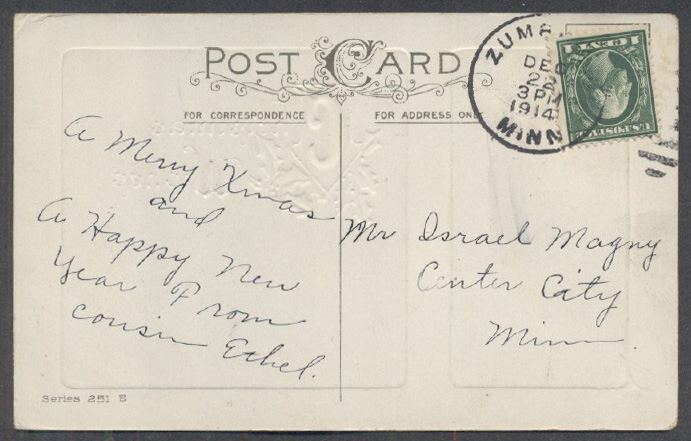 POST CARD
FOR CORRESPONDENCE
FOR ADDRESS ONLY
A Merry Xmas
and
A Happy New
Year From
cousin Ethel.
Mr Israel Magny
Center City
Minn
DEC
22
3 PM
1914
MINN
1 CENT 1
U.S. POSTAGE
Series 251 B